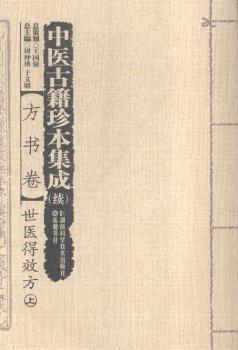 中医古籍珍本集成
(续)
总策划◎王国强
总主编◎周仲瑛 于文明
【方书卷】
世医得效方 上
湖南科学技术出版社
岳麓书社